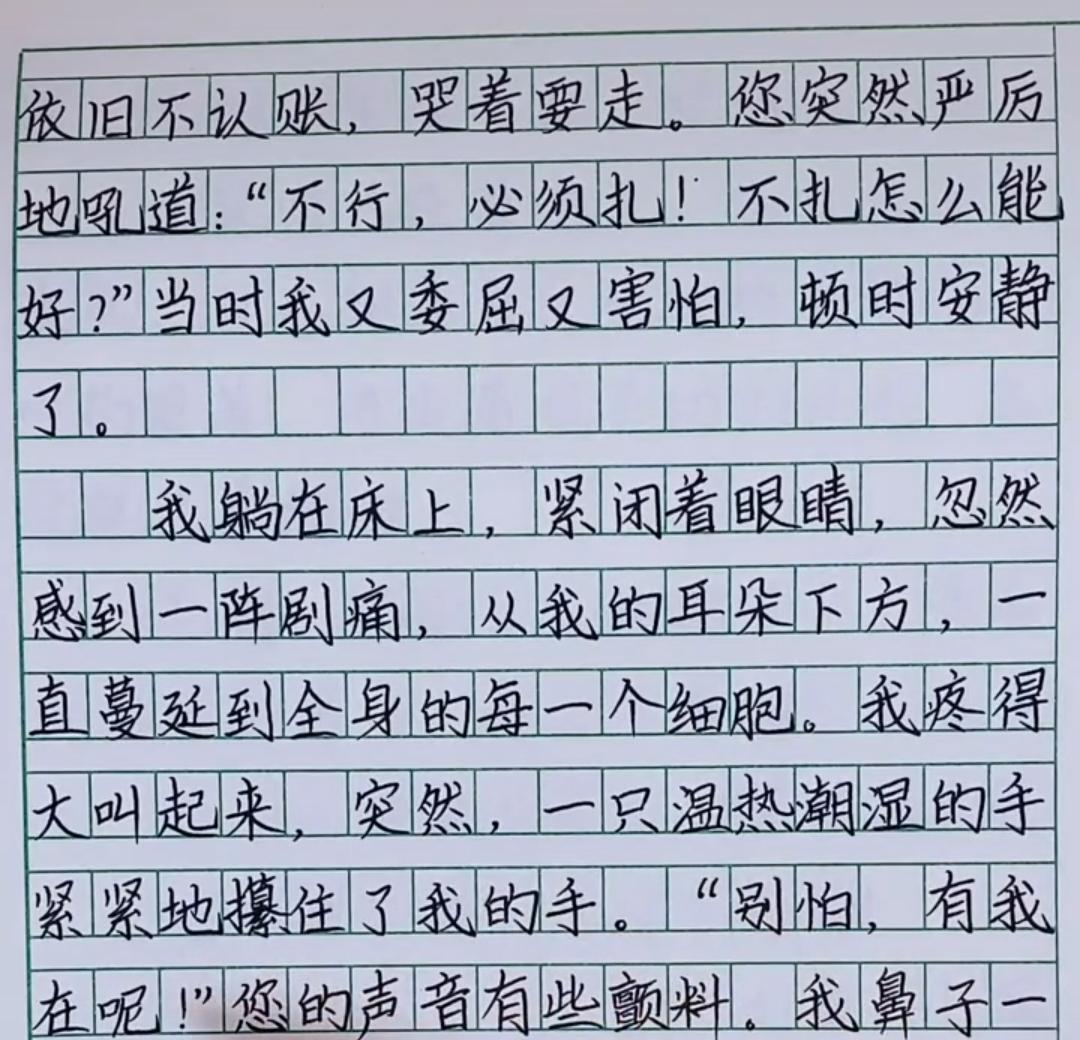 依旧不认账，哭着要走。您突然严厉
地吼道：“不行，必须扎！不扎怎么能
好？”当时我又委屈又害怕，顿时安静
了。
我躺在床上，紧闭着眼睛，忽然
感到一阵剧痛，从我的耳朵下方，一
直蔓延到全身的每一个细胞。我疼得
大叫起来，突然，一只温热潮湿的手
紧紧地攥住了我的手。“别怕，有我
在呢！”您的声音有些颤料。我鼻子一